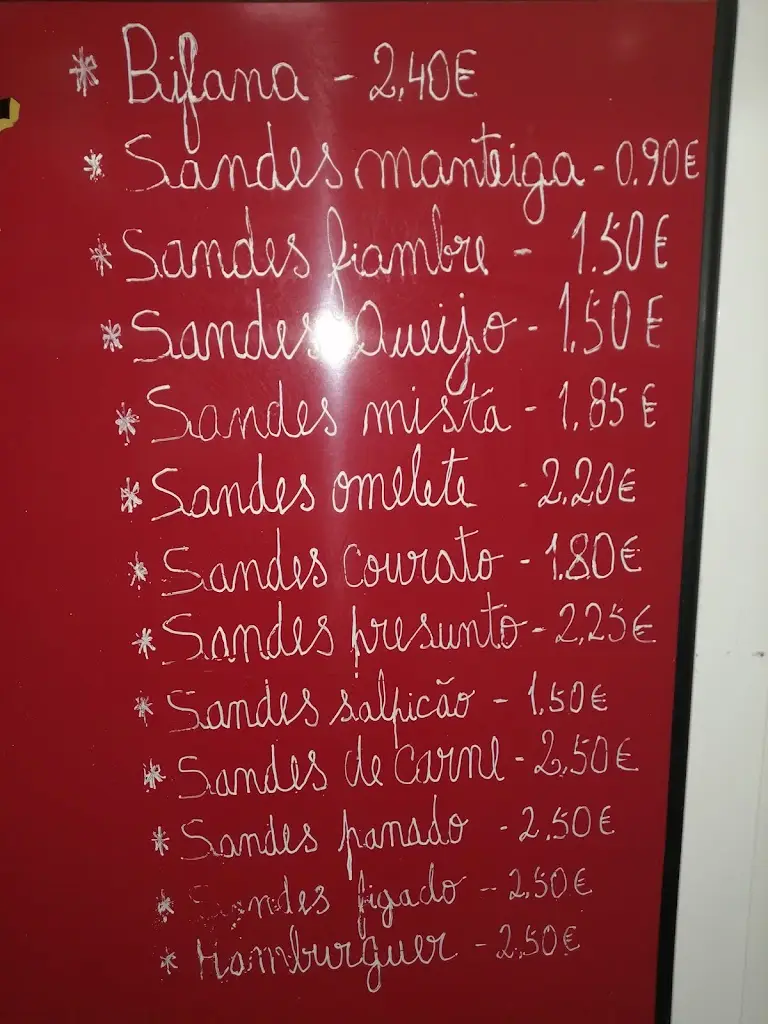 * Bifana - 2,40€
* Sandes manteiga - 0.90€
* Sandes fiambre - 1.50€
* Sandes Queijo - 1,50€
* Sandes mista - 1,85€
* Sandes omelete - 2,20€
* Sandes courato - 1.80€
* Sandes presunto - 2,25€
* Sandes salpicão - 1.50€
* Sandes de carne - 2,50€
* Sandes panado - 2.50€
* Sandes figado - 2,50€
* Hamburguer - 2,50€